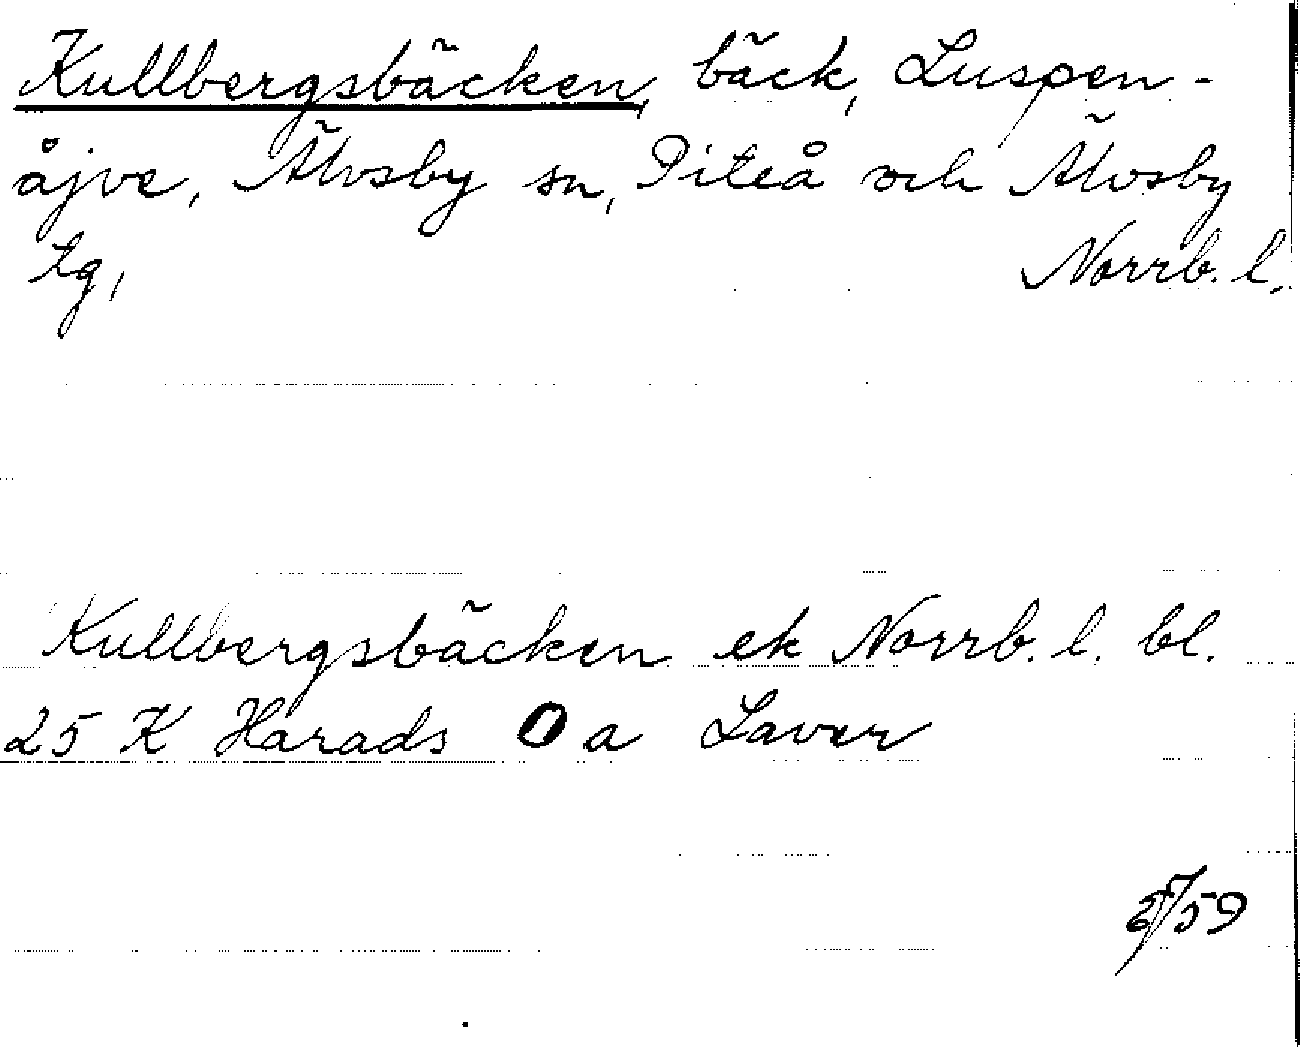 Kullbergsbäcken, bäck, Luspen-
åjve, Älvsby sn, Piteå och Älvsby
tg, Norrb. l.
Kullbergsbäcken ek Norrb. l. bl.
25 K Harads O a Laver